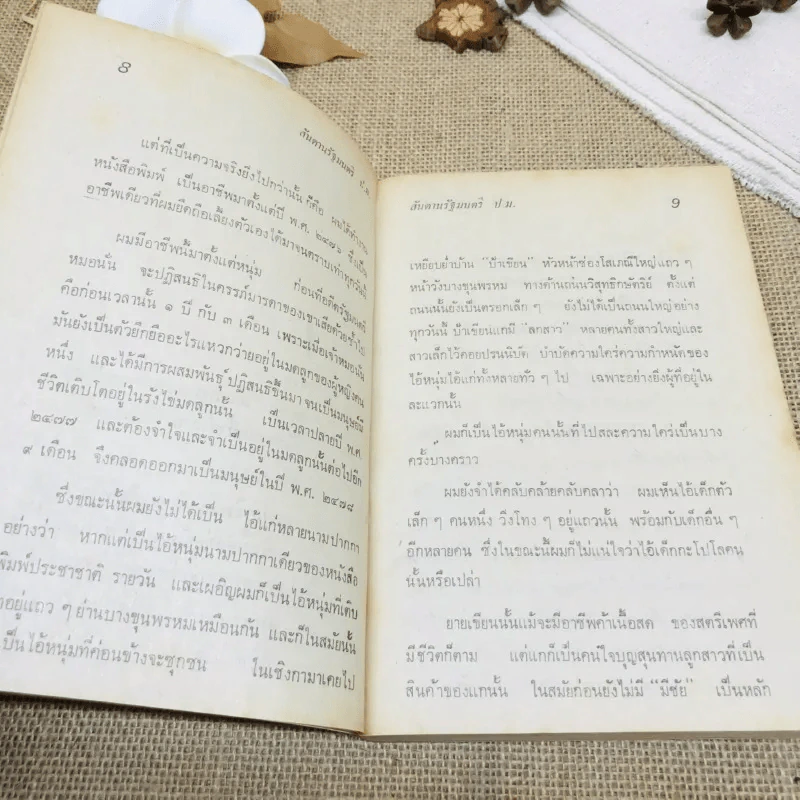 8
สันดานรัฐมนตรี ป.ม.
แต่ที่เป็นความจริงยิ่งไปกว่านั้น ก็คือ ผมได้ทำงาน
หนังสือพิมพ์ เป็นอาชีพมาตั้งแต่ปี พ.ศ. ๒๔๗๖ ซึ่งเป็น
อาชีพเดียวที่ผมยึดถือเลี้ยงตัวเองได้มาจนตราบเท่าทุกวันนี้
ผมมีอาชีพนี้มาตั้งแต่หนุ่ม ก่อนที่อดีตรัฐมนตรี
หมอนั่น จะปฏิสนธิในครรภ์มารดาของเขาเสียด้วยซ้ำไป
คือก่อนเวลานั้น ๑ ปี กับ ๓ เดือน เพราะเมื่อเจ้าหมอนั่น
มันยังเป็นตัวยึกยืออะไรแหวกว่ายอยู่ในมดลูกของผู้หญิงคน
หนึ่ง และได้มีการผสมพันธุ์ ปฏิสนธิขึ้นมา จนเป็นมนุษย์มี
ชีวิตเติบโตอยู่ในรังไข่มดลูกนั้น เป็นเวลาปลายปี พ.ศ.
๒๔๗๗ และต้องจำใจและจำเป็นอยู่ในมดลูกนั้นต่อไปอีก
๙ เดือน จึงคลอดออกมาเป็นมนุษย์ในปี พ.ศ. ๒๔๗๘
ซึ่งขณะนั้นผมยังไม่ได้เป็น ไอ้แก่หลายนามปากกา
อย่างว่า หากแต่เป็นไอ้หนุ่มนามปากกาเดียวของหนังสือ
พิมพ์ประชาชาติ รายวัน และเผอิญผมก็เป็นไอ้หนุ่มที่เติบ
อยู่แถว ๆ ย่านบางขุนพรหมเหมือนกัน และก็ในสมัยนั้น
เป็นไอ้หนุ่มที่ค่อนข้างจะซุกซน ในเชิงกามาเคยไป
สันดานรัฐมนตรี ป.ม. 9
เหยียบย่ำบ้าน "ป้าเขียน" หัวหน้าซ่องโสเภณีใหญ่แถว ๆ
หน้าวังบางขุนพรหม ทางด้านถนนวิสุทธิกษัตริย์ ตั้งแต่
ถนนนั้นยังเป็นตรอกเล็ก ๆ ยังไม่ได้เป็นถนนใหญ่อย่าง
ทุกวันนี้ ป้าเขียนแกมี "ลูกสาว" หลายคนทั้งสาวใหญ่และ
สาวเล็กไว้คอยปรนนิบัติ บำบัดความใคร่ความกำหนัดของ
ไอ้หนุ่มไอ้แก่ทั้งหลายทั่ว ๆ ไป เฉพาะอย่างยิ่งผู้ที่อยู่ใน
ละแวกนั้น
ผมก็เป็นไอ้หนุ่มคนนั้นที่ไปสละความใคร่เป็นบาง
ครั้งบางคราว
ผมยังจำได้คลับคล้ายคลับคลาว่า ผมเห็นไอ้เด็กตัว
เล็ก ๆ คนหนึ่ง วิ่งโทง ๆ อยู่แถวนั้น พร้อมกับเด็กอื่น ๆ
อีกหลายคน ซึ่งในขณะนี้ผมก็ไม่แน่ใจว่าไอ้เด็กกะโปโลคน
นั้นหรือเปล่า
ยายเขียนนั้นแม้จะมีอาชีพค้าเนื้อสด ของสตรีเพศที่
มีชีวิตก็ตาม แต่แกก็เป็นคนใจบุญสุนทานลูกสาวที่เป็น
สินค้าของแกนั้น ในสมัยก่อนยังไม่มี "มีชัย" เป็นหลัก